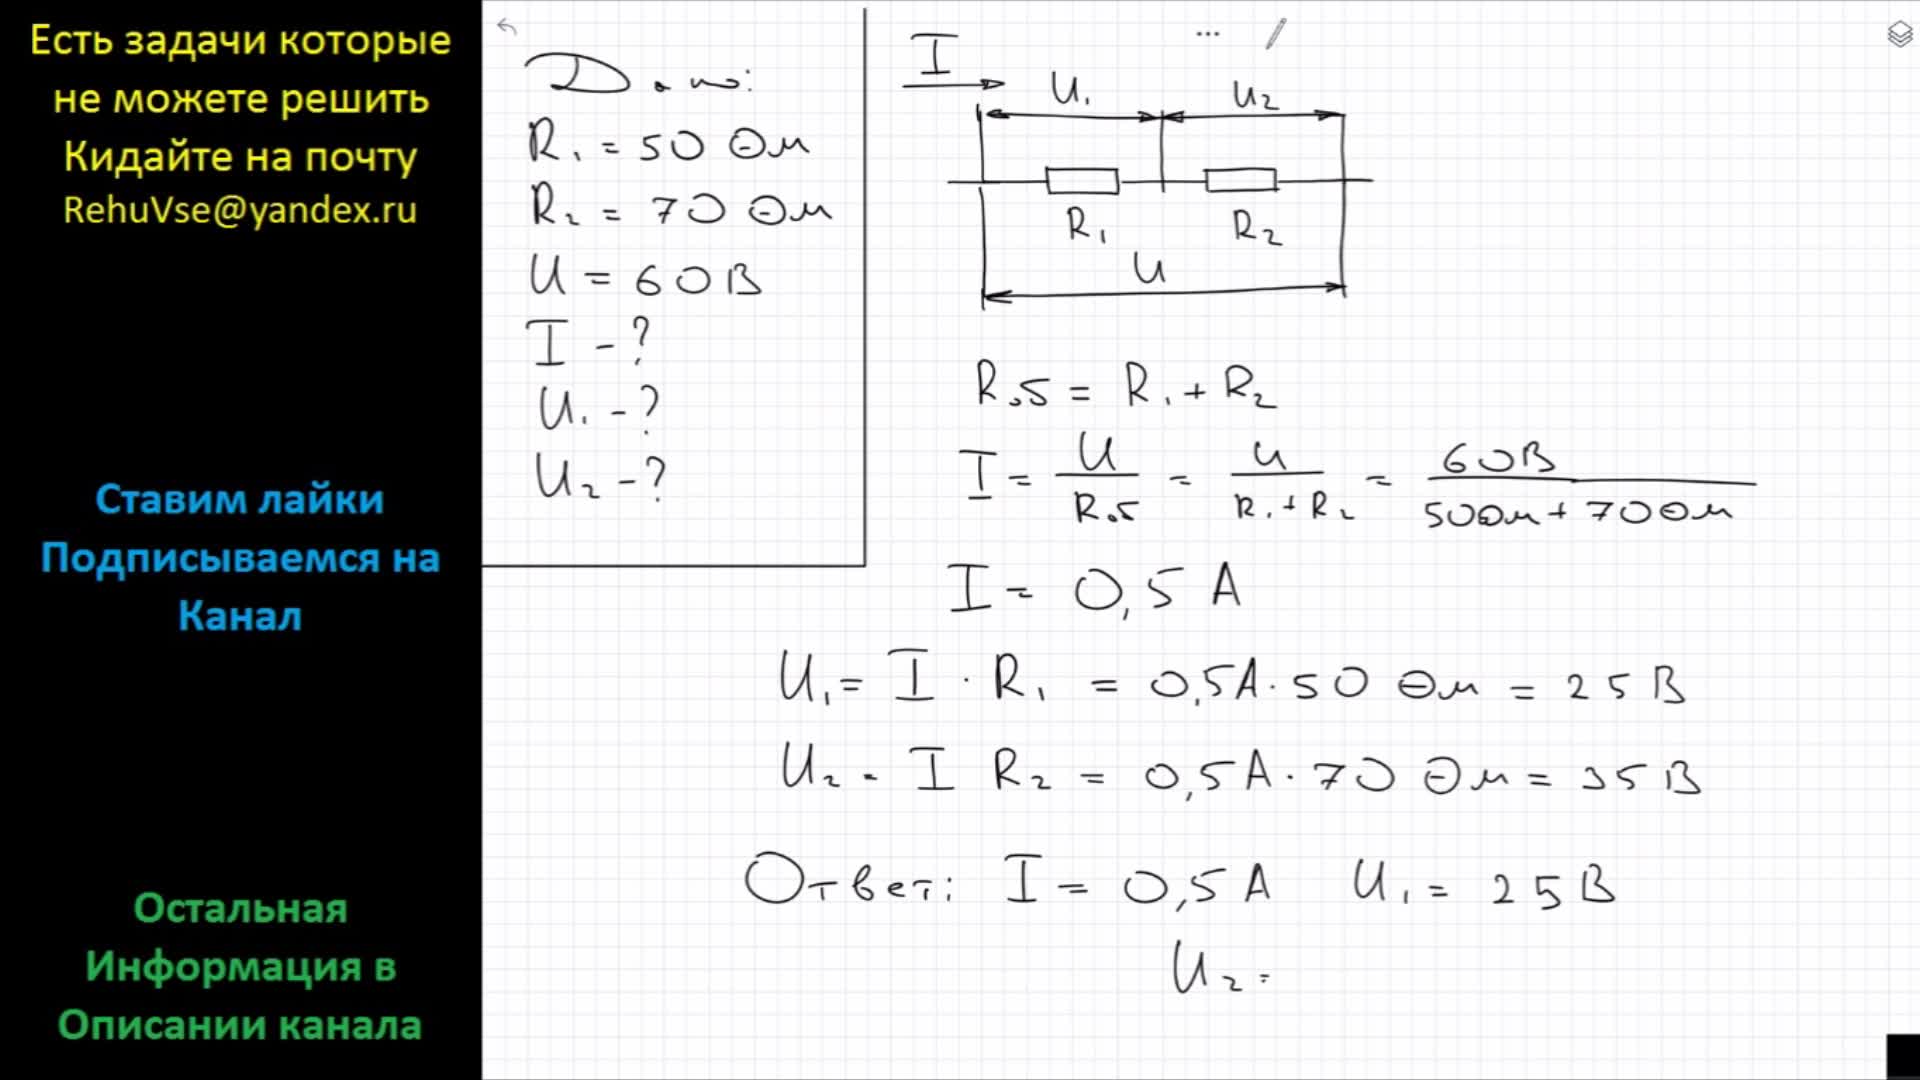 Есть задачи которые
не можете решить
Кидайте на почту
RehuVse@yandex.ru
Ставим лайки
Подписываемся на
Канал
Остальная
Информация в
Описании канала
Дано:
R₁ = 50 Ом
R₂ = 70 Ом
U = 60 В
I - ?
U₁ - ?
U₂ - ?
I
U₁ U₂
R₁ R₂
U
Rоб = R₁ + R₂
I = U/Rоб = U/(R₁ + R₂) = 60 В/(50 Ом + 70 Ом)
I = 0,5 А
U₁ = I · R₁ = 0,5 А · 50 Ом = 25 В
U₂ = I R₂ = 0,5 А · 70 Ом = 35 В
Ответ: I = 0,5 А U₁ = 25 В
U₂ =